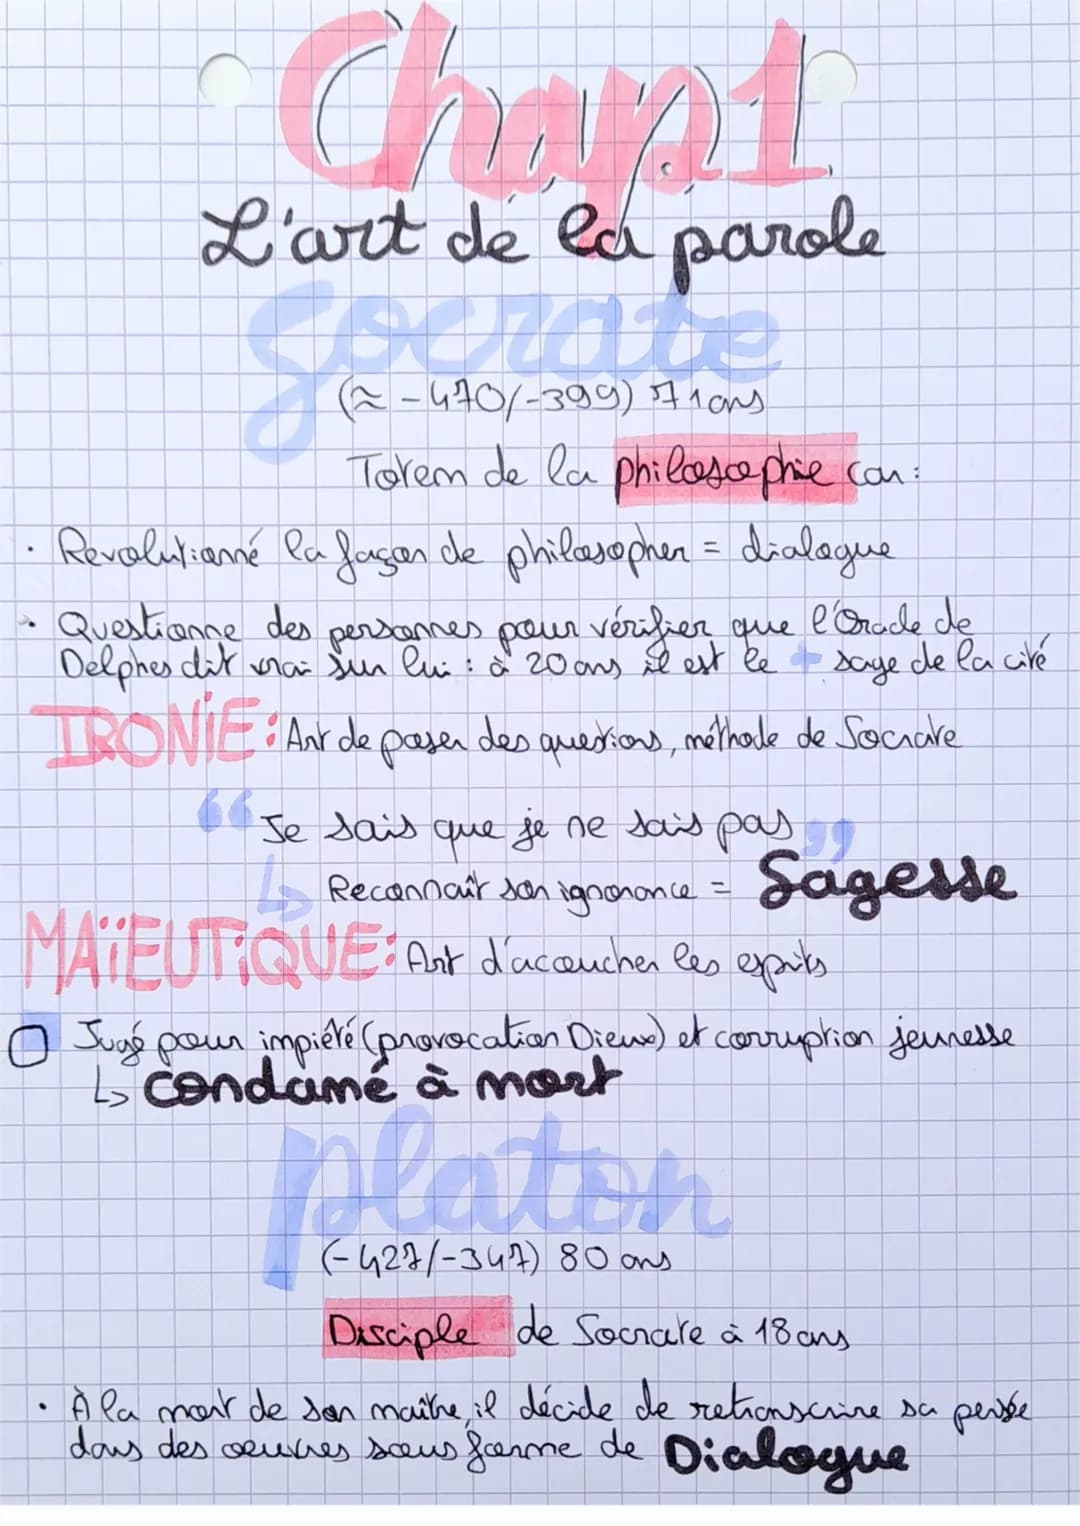 Chap.1
L'art de la parole
Socrate
(≈ -470/-399) 71 ans
Totem de la philosophie car:
· Revolutionné la façon de philosopher = dialogue
· Questionne des personnes pour vérifier que l'Oracle de
Delphes dit vrai sur lui : à 20 ans il est le + sage de la cité
IRONIE: Art de poser des questions, méthode de Socrate
“ Je sais que je ne sais pas ”
↳ Reconnaît son ignorance = Sagesse
MAÏEUTIQUE: Art d'accoucher les esprits
Jugé pour impiété (provocation Dieux) et corruption jeunesse
↳ condamé à mort
platon
(-427/-347) 80 ans
Disciple de Socrate à 18 ans
· À la mort de son maître, il décide de retranscrire sa pensée
dans des oeuvres sous forme de Dialogue